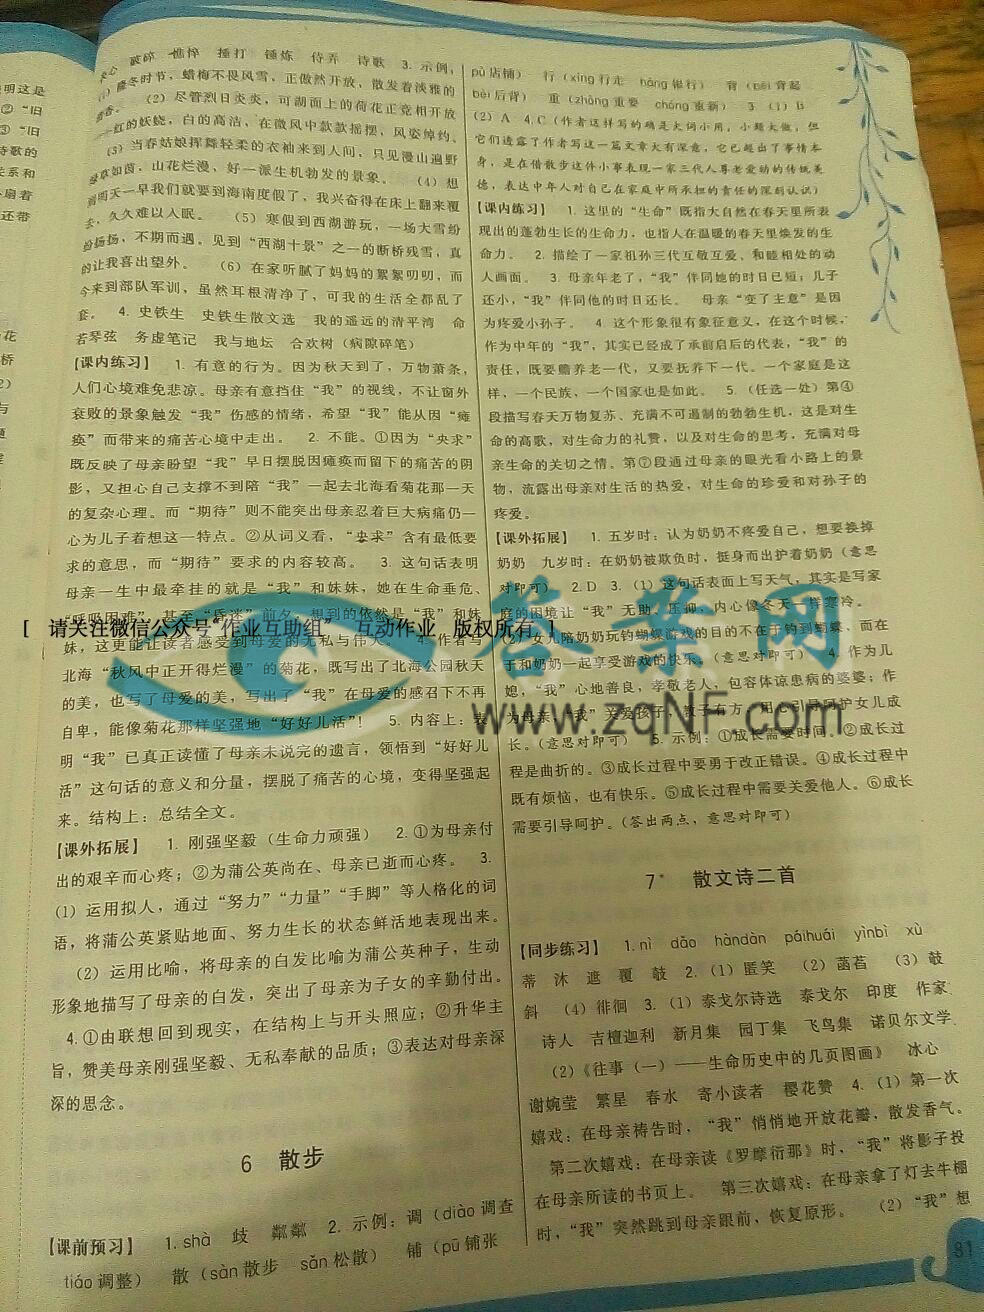 明这是
②“旧
③“旧
诗歌的
关系和
扇着
还带
破碎 憔悴 捶打 锤炼 侍弄 诗歌 3.示例，
(1)隆冬时节，蜡梅不畏风雪，正傲然开放，散发着淡雅的
清香。 (2)尽管烈日炎炎，可湖面上的荷花正竞相开放
——红的妖娆，白的高洁，在微风中款款摇摆，风姿绰约。
(3)当春姑娘挥舞轻柔的衣袖来到人间，只见漫山遍野
绿草如茵，山花烂漫，好一派生机勃发的景象。 (4)想
到明天一早我们就要到海南度假了，我兴奋得在床上翻来覆
去，久久难以入眠。 (5)寒假到西湖游玩，一场大雪纷
纷扬扬，不期而遇。见到“西湖十景”之一的断桥残雪，真
的让我喜出望外。 (6)在家听腻了妈妈的絮絮叨叨，而
今来到部队军训，虽然耳根清净了，可我的生活全都乱了
套。 4.史铁生 史铁生散文选 我的遥远的清平湾 命
若琴弦 务虚笔记 我与地坛 合欢树(病隙碎笔)
[课内练习] 1.有意的行为。因为秋天到了，万物萧条，
人们心境难免悲凉。母亲有意挡住“我”的视线，不让窗外
衰败的景象触发“我”伤感的情绪，希望“我”能从因“瘫
痪”而带来的痛苦心境中走出。 2.不能。①因为“央求”
既反映了母亲盼望“我”早日摆脱因瘫痪而留下的痛苦的阴
影，又担心自己支撑不到陪“我”一起去北海看菊花那一天
的复杂心理。而“期待”则不能突出母亲忍着巨大病痛仍一
心为儿子着想这一特点。②从词义看，“央求”含有最低要
求的意思，而“期待”要求的内容较高。 3.这句话表明
母亲一生中最牵挂的就是“我”和妹妹，她在生命垂危、
“呼吸困难”，甚至“昏迷”前夕，想到的依然是“我”和妹
妹，这更能让读者感受到母爱的无私与伟大。 作者写
北海“秋风中正开得烂漫”的菊花，既写出了北海公园秋天
的美，也写了母爱的美，写出了“我”在母爱的感召下不再
自卑，能像菊花那样坚强地“好好儿活”！ 5.内容上：表
明“我”已真正读懂了母亲未说完的遗言，领悟到“好好儿
活”这句话的意义和分量，摆脱了痛苦的心境，变得坚强起
来。结构上：总结全文。
[课外拓展] 1.刚强坚毅(生命力顽强) 2.①为母亲付
出的艰辛而心疼；②为蒲公英尚在、母亲已逝而心疼。 3.
(1)运用拟人，通过“努力”“力量”“手脚”等人格化的词
语，将蒲公英紧贴地面、努力生长的状态鲜活地表现出来。
(2)运用比喻，将母亲的白发比喻为蒲公英种子，生动
形象地描写了母亲的白发，突出了母亲为子女的辛勤付出。
4.①由联想回到现实，在结构上与开头照应；②升华主
旨，赞美母亲刚强坚毅、无私奉献的品质；③表达对母亲深
深的思念。
6 散步
[课前预习] 1.shà 歧 粼粼 2.示例：调(diào调查
tiáo调整) 散(sàn散步 sǎn松散) 铺(pū铺张
pù店铺) 行(xíng行走 háng银行) 背(bēi背起
bèi后背) 重(zhòng重要 chóng重新) 3.(1)B
(2)A 4.C(作者这样写的确是大词小用，小题大做，但
它们透露了作者写这一篇文章大有深意，它已超出了事情本
身，是在借散步这件小事表现一家三代人尊老爱幼的传统美
德，表达中年人对自己在家庭中所承担的责任的深刻认识)
[课内练习] 1.这里的“生命”既指大自然在春天里所表
现出的蓬勃生长的生命力，也指人在温暖的春天里焕发的生
命力。 2.描绘了一家祖孙三代互敬互爱、和睦相处的动
人画面。 3.母亲年老了，“我”伴同她的时日已短；儿子
还小，“我”伴同他的时日还长。 母亲“变了主意”是因
为疼爱小孙子。 4.这个形象很有象征意义，在这个时候，
作为中年的“我”，其实已经成了承前启后的代表，“我”的
责任，既要赡养老一代，又要抚养下一代。一个家庭是这
样，一个民族，一个国家也是如此。 5.(任选一处)第④
段描写春天万物复苏、充满不可遏制的勃勃生机，这是对生
命的高歌，对生命力的礼赞，以及对生命的思考，充满对母
亲生命的关切之情。第⑦段通过母亲的眼光看小路上的景
物，流露出母亲对生活的热爱，对生命的珍爱和对孙子的
疼爱。
[课外拓展] 1.五岁时：认为奶奶不疼爱自己，想要换掉
奶奶 九岁时：在奶奶被欺负时，挺身而出护着奶奶(意思
对即可) 2.D 3.(1)这句话表面上写天气，其实是写家
庭的困境让“我”无助、压抑，内心像冬天一样寒冷。
(2)女人陪奶奶玩钓蝴蝶游戏的目的不在于钓到蝴蝶，而在
于和奶奶一起享受游戏的快乐。(意思对即可) 4.作为儿
媳，“我”心地善良，孝敬老人，包容体谅患病的婆婆；作
为母亲，“我”关爱孩子，教子有方，用心引导呵护女儿成
长。(意思对即可) 5.示例：①成长需要时间。②成长过
程是曲折的。③成长过程中要勇于改正错误。④成长过程中
既有烦恼，也有快乐。⑤成长过程中需要关爱他人。⑥成长
需要引导呵护。(答出两点，意思对即可)
7* 散文诗二首
[同步练习] 1.nì dǎo hàndàn páihuái yìnbì xù
蒂 沐 遮 覆 敧 2.(1)匿笑 (2)菡萏 (3)敧
斜 (4)徘徊 3.(1)泰戈尔诗选 泰戈尔 印度 作家、
诗人 吉檀迦利 新月集 园丁集 飞鸟集 诺贝尔文学
(2)《往事(一)——生命历史中的几页图画》 冰心
谢婉莹 繁星 春水 寄小读者 樱花赞 4.(1)第一次
嬉戏：在母亲祷告时，“我”悄悄地开放花瓣，散发香气。
第二次嬉戏：在母亲读《罗摩衍那》时，“我”将影子投
在母亲所读的书页上。 第三次嬉戏：在母亲拿了灯去牛棚
时，“我”突然跳到母亲跟前，恢复原形。 (2)“我”想
81
[ 请关注微信公众号“作业互助组” 互动作业 版权所有 ]
答案网
www.zqNF.com